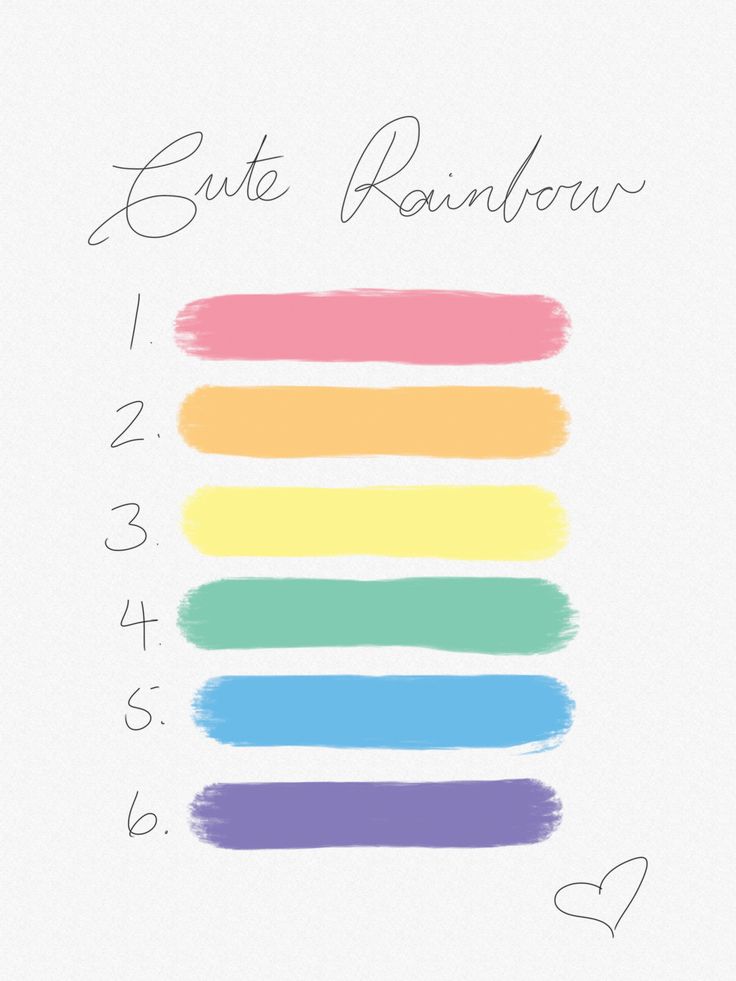 Cute Rainbow
1.
2.
3.
4.
5.
6.